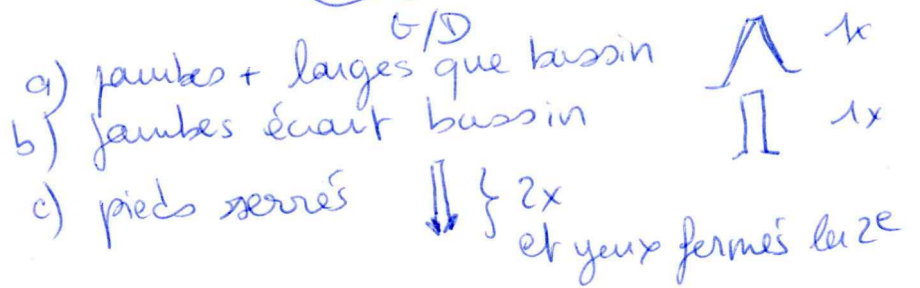 G/D
a) jambes + larges que bassin 1x
b) jambes écart bassin 1x
c) pieds serrés } 2x
et yeux fermés la 2e